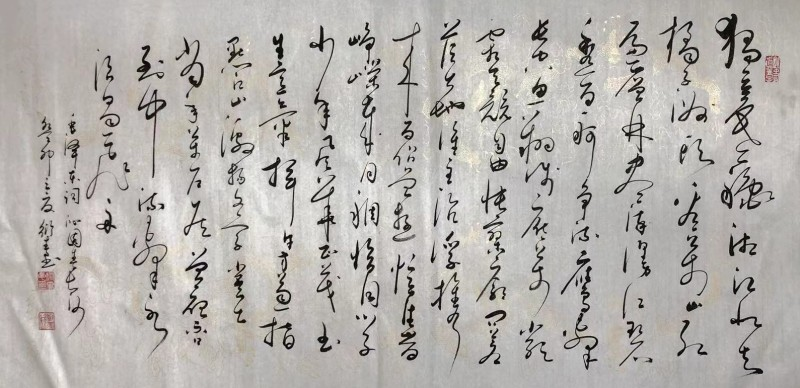 独立寒秋湘江北去
橘子洲头看万山红
遍层林尽染漫江碧
透百舸争流鹰击
长空鱼翔浅底万类
霜天竞自由怅寥廓问苍
茫大地谁主沉浮携
来百侣曾游忆往昔
峥嵘岁月稠恰同学
少年风华正茂书
生意气挥斥方遒指
点江山激扬文字粪土
当年万户侯曾记否
到中流击水
浪遏飞舟
毛泽东词沁园春长沙
癸卯之夏